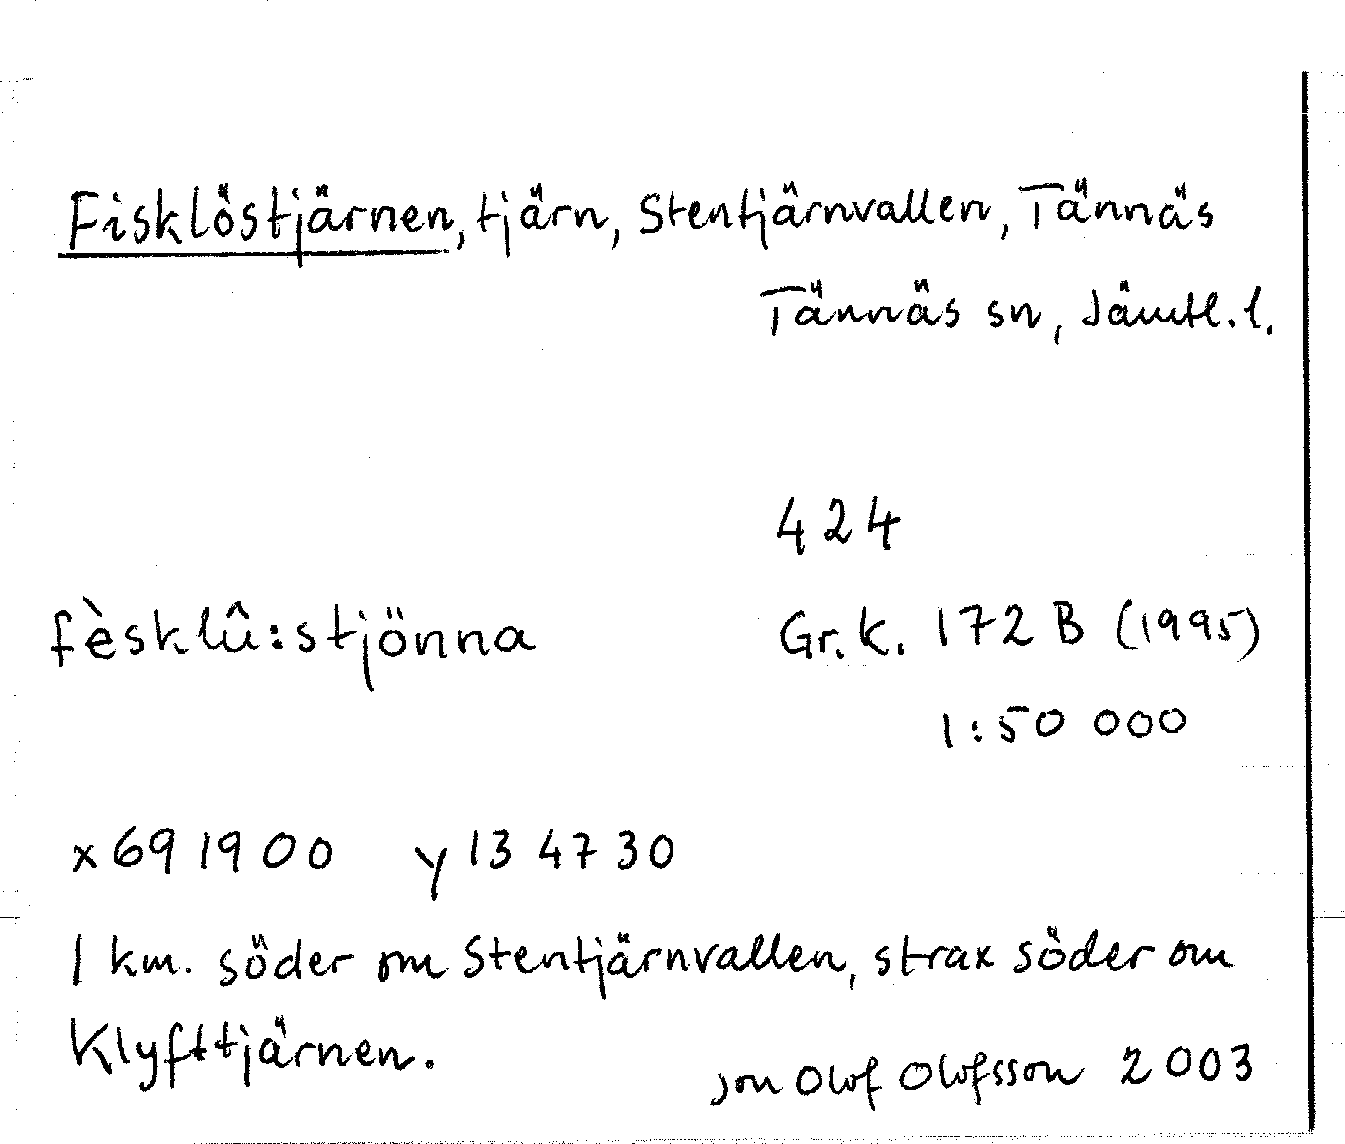 Fisklöstjärnen, tjärn, Stentjärnvallen, Tännäs
Tännäs sn, Jämtl. l.
424
fèsklû:stjönna
Gr. k. 172 B (1995)
1:50 000
x 691900 y 134730
1 km. söder om Stentjärnvallen, strax söder om
Klyfttjärnen.
Jon Olof Olofsson 2003